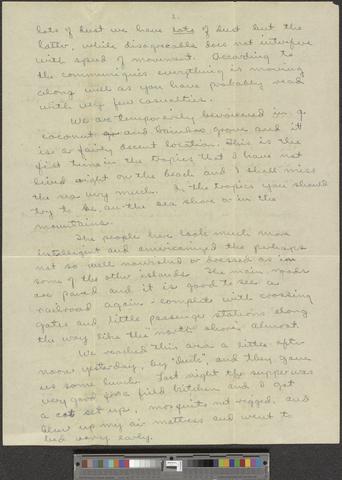 2.
lots of dust we have lots of dust but the
latter, while disagreeable does not interfere
with speed of movement. According to
the communiques everything is moving
along well as you have probably read
with very few casualties.
We are temporarily bivouaced in a
coconut and bamboo grove and it
is a fairly decent location. This is the
first time in the tropics that I have not
lived right on the beach and I shall miss
the sea very much. In the tropics you should
try to be on the sea shore or in the
mountains.
The people here look much more
intelligent and americanized tho perhaps
not so well nourished or dressed as in
some of the other islands. The main roads
are paved and it is good to see a
railroad again - complete with crossing
gates and little passenger stations along
the way like the "north" shore, almost.
We reached this area a little after
noon yesterday, by "duck", and they gave
us some lunch. Last night the supper was
very good for a field kitchen and I got
a cot set up, mosquito net rigged, and
blew up my air mattress and went to
bed very early.